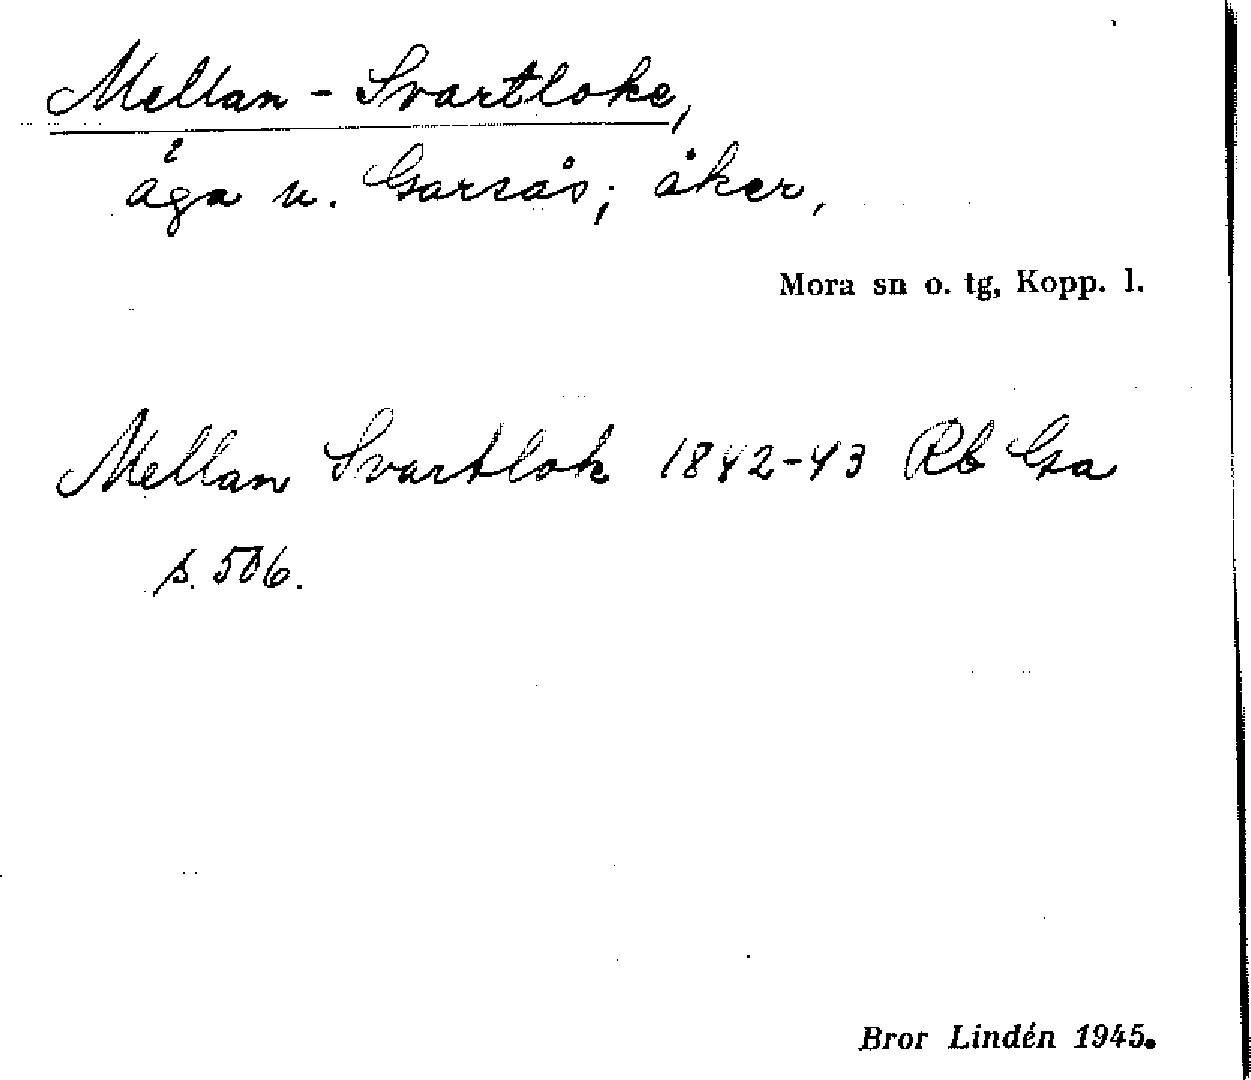 Mellan-Svartloke,
åga u. Garsås; åker,
Mora sn o. tg, Kopp. l.
Mellan Svartlok 1842-43 Rb Gsa
s. 506.
Bror Lindén 1945.